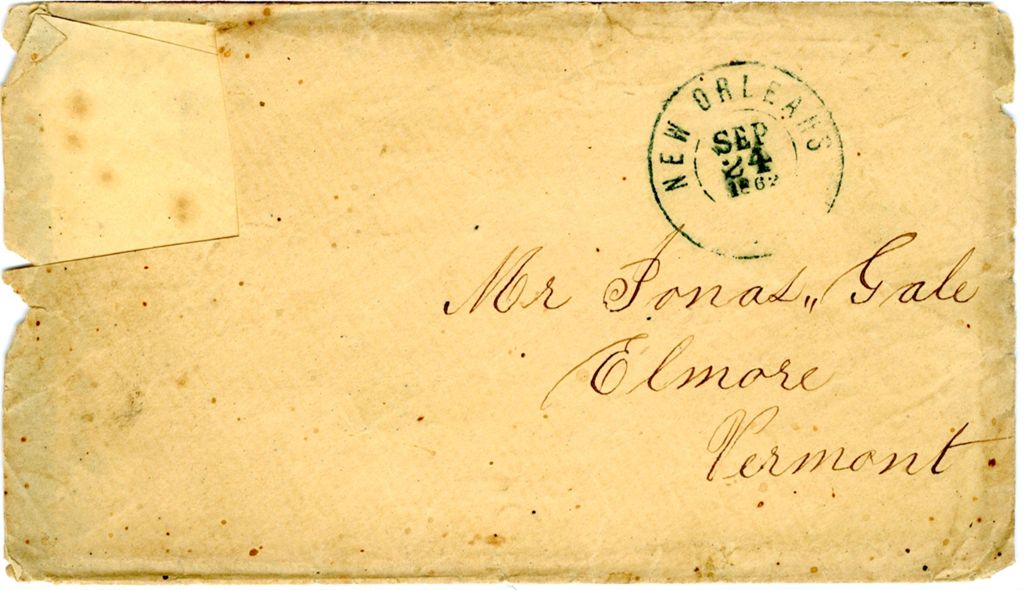 NEW ORLEANS
SEP
24
1862
Mr Jonas,, Gale
Elmore
Vermont